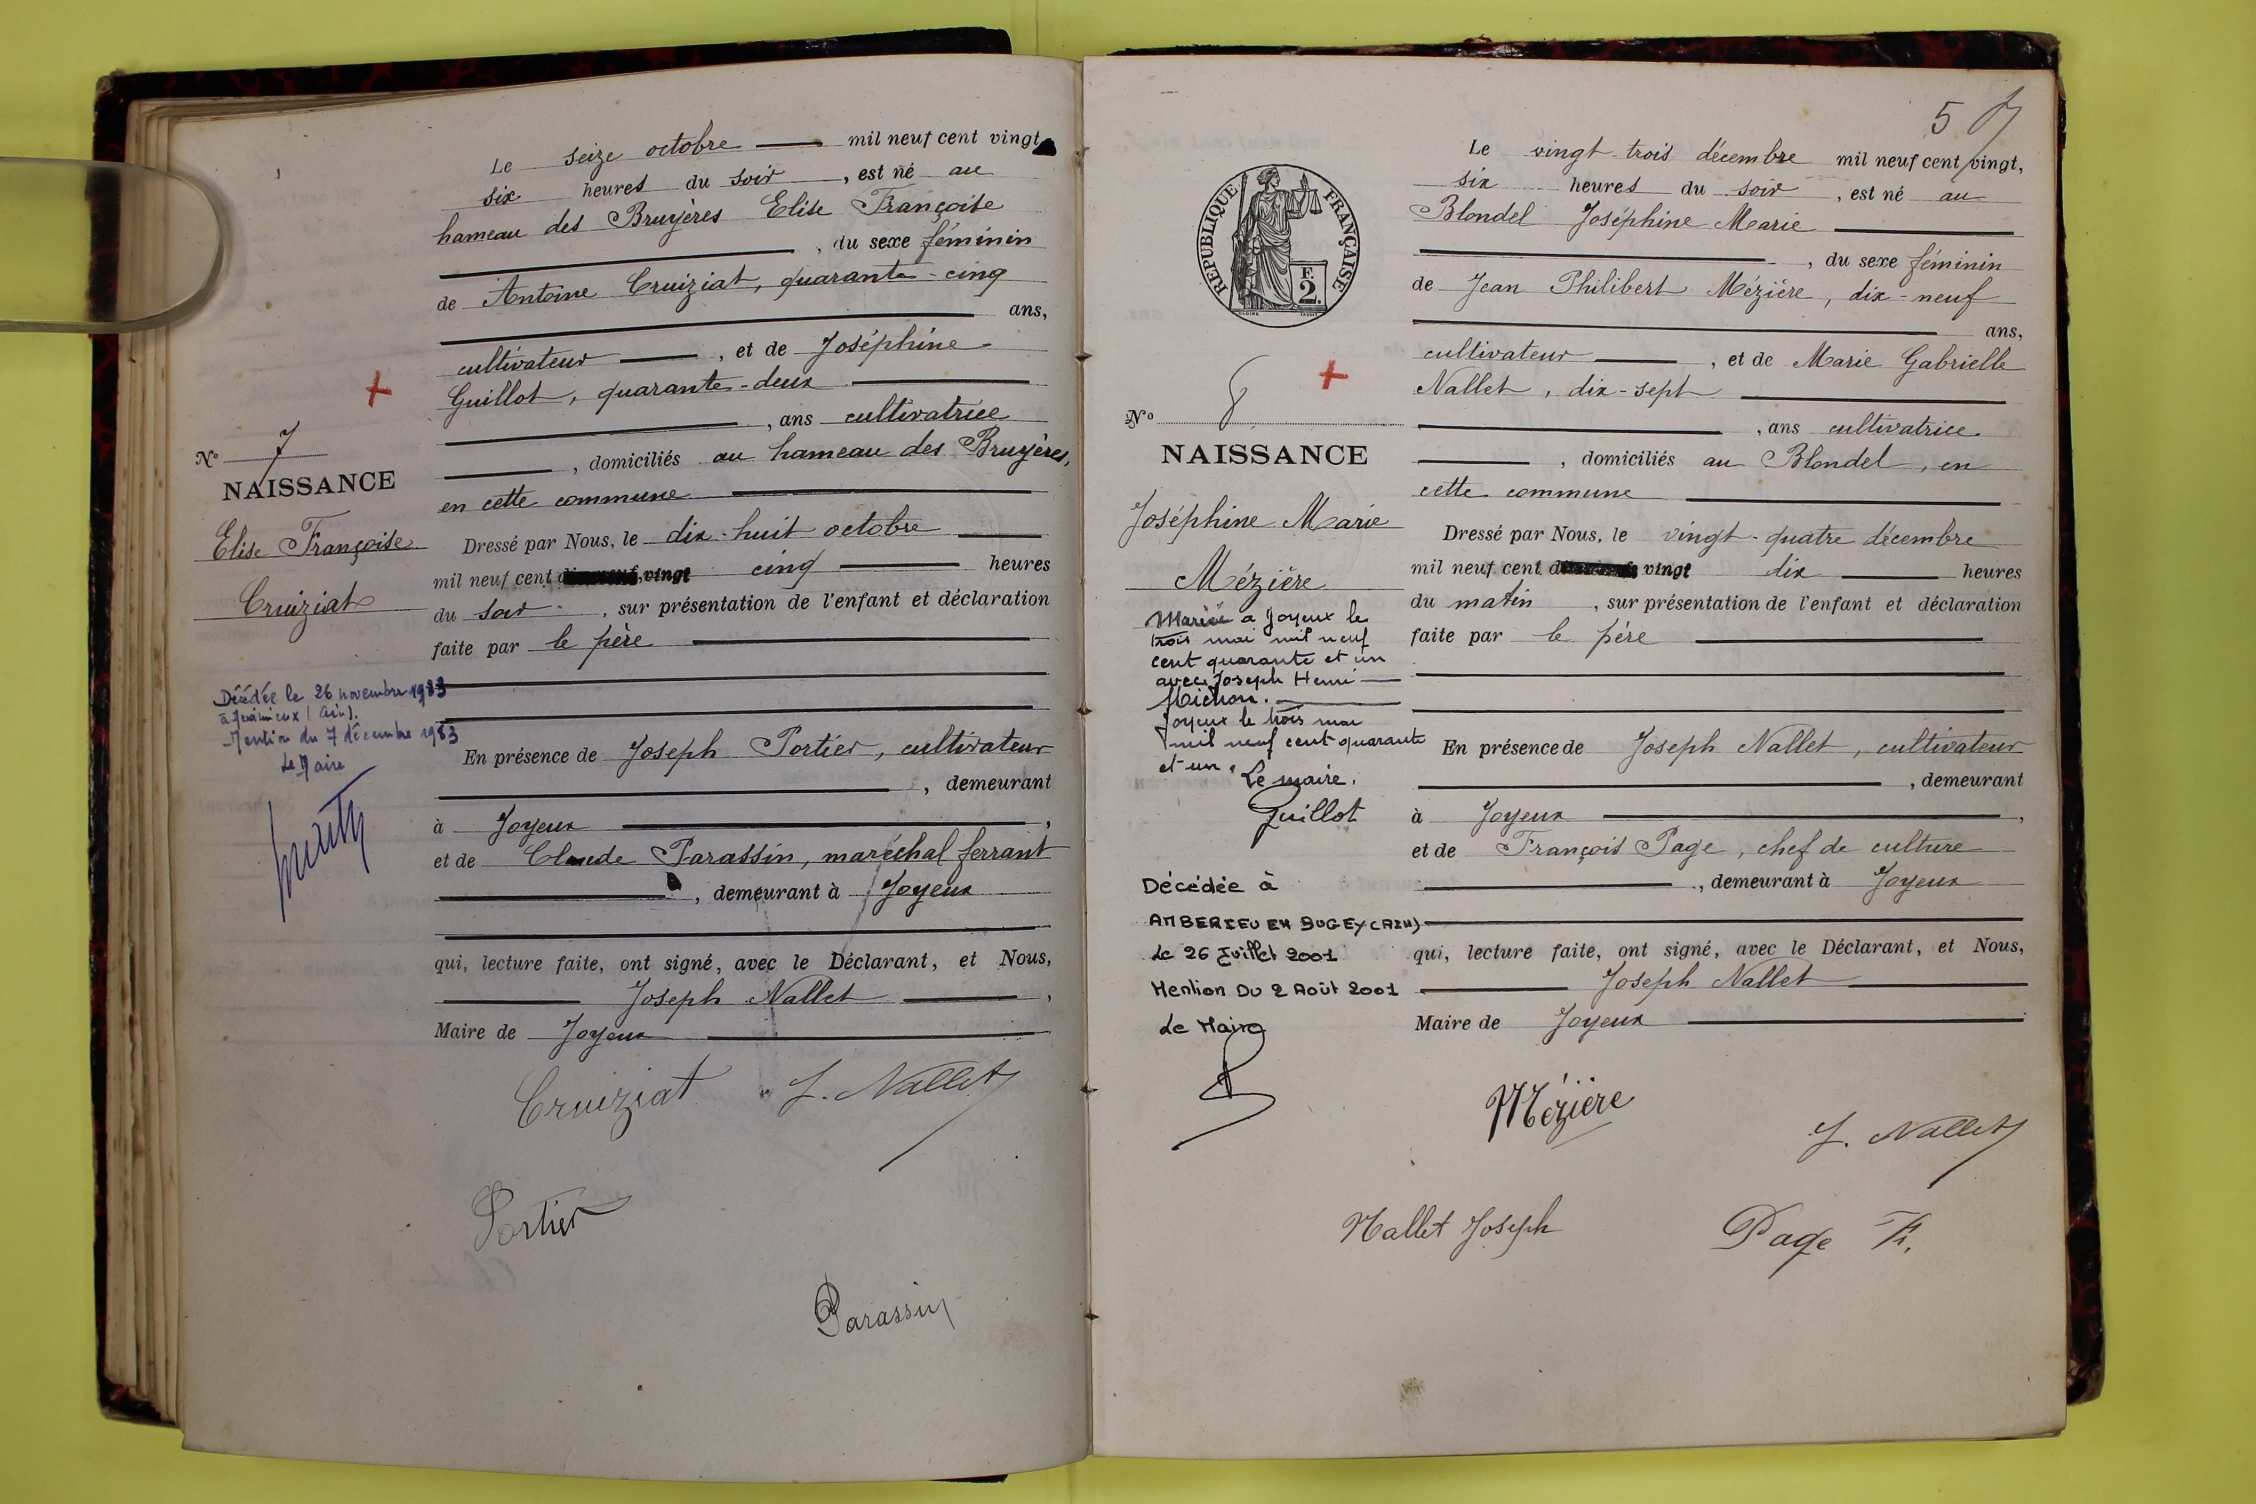 Le seize octobre mil neuf cent vingt
six heures du soir, est né au
hameau des Bruyères Elise Françoise
, du sexe féminin
de Antoine Cruiziat, quarante-cinq
ans,
cultivateur, et de Joséphine
Guillot, quarante-deux
, ans cultivatrice
, domiciliés au hameau des Bruyères,
en cette commune
Dressé par Nous, le dix-huit octobre
mil neuf cent vingt cinq heures
du soir, sur présentation de l'enfant et déclaration
faite par le père
En présence de Joseph Portier, cultivateur
, demeurant
à Joyeux,
et de Claude Parassin, maréchal ferrant
, demeurant à Joyeux
qui, lecture faite, ont signé, avec le Déclarant, et Nous,
Joseph Nallet,
Maire de Joyeux
Cruiziat J. Nallet
Portier
Parassin
No 7
NAISSANCE
Elise Françoise
Cruiziat
Décédée le 26 novembre 1983
à (Ain).
Mention du 7 décembre 1983
Le Maire
5
REPUBLIQUE FRANÇAISE
F.
2.
Le vingt-trois décembre mil neuf cent vingt,
six heures du soir, est né au
Blondel Joséphine Marie
, du sexe féminin
de Jean Philibert Mézière, dix-neuf
ans,
cultivateur, et de Marie Gabrielle
Nallet, dix-sept
, ans cultivatrice
, domiciliés au Blondel, en
cette commune
Dressé par Nous, le vingt-quatre décembre
mil neuf cent vingt dix heures
du matin, sur présentation de l'enfant et déclaration
faite par le père
En présence de Joseph Nallet, cultivateur
, demeurant
à Joyeux,
et de François Page, chef de culture
, demeurant à Joyeux
qui, lecture faite, ont signé, avec le Déclarant, et Nous,
Joseph Nallet
Maire de Joyeux
Mézière
J. Nallet
Nallet Joseph Page F.
No 8
NAISSANCE
Joséphine Marie
Mézière
Mariée à Joyeux le
trois mai mil neuf
cent quarante et un
avec Joseph Henri
Michon.
Joyeux le trois mai
mil neuf cent quarante
et un.
Le maire.
Guillot
Décédée à
AMBERIEU EN BUGEY (AIN)
Le 26 Juillet 2001
Mention Du 2 Août 2001
Le Maire